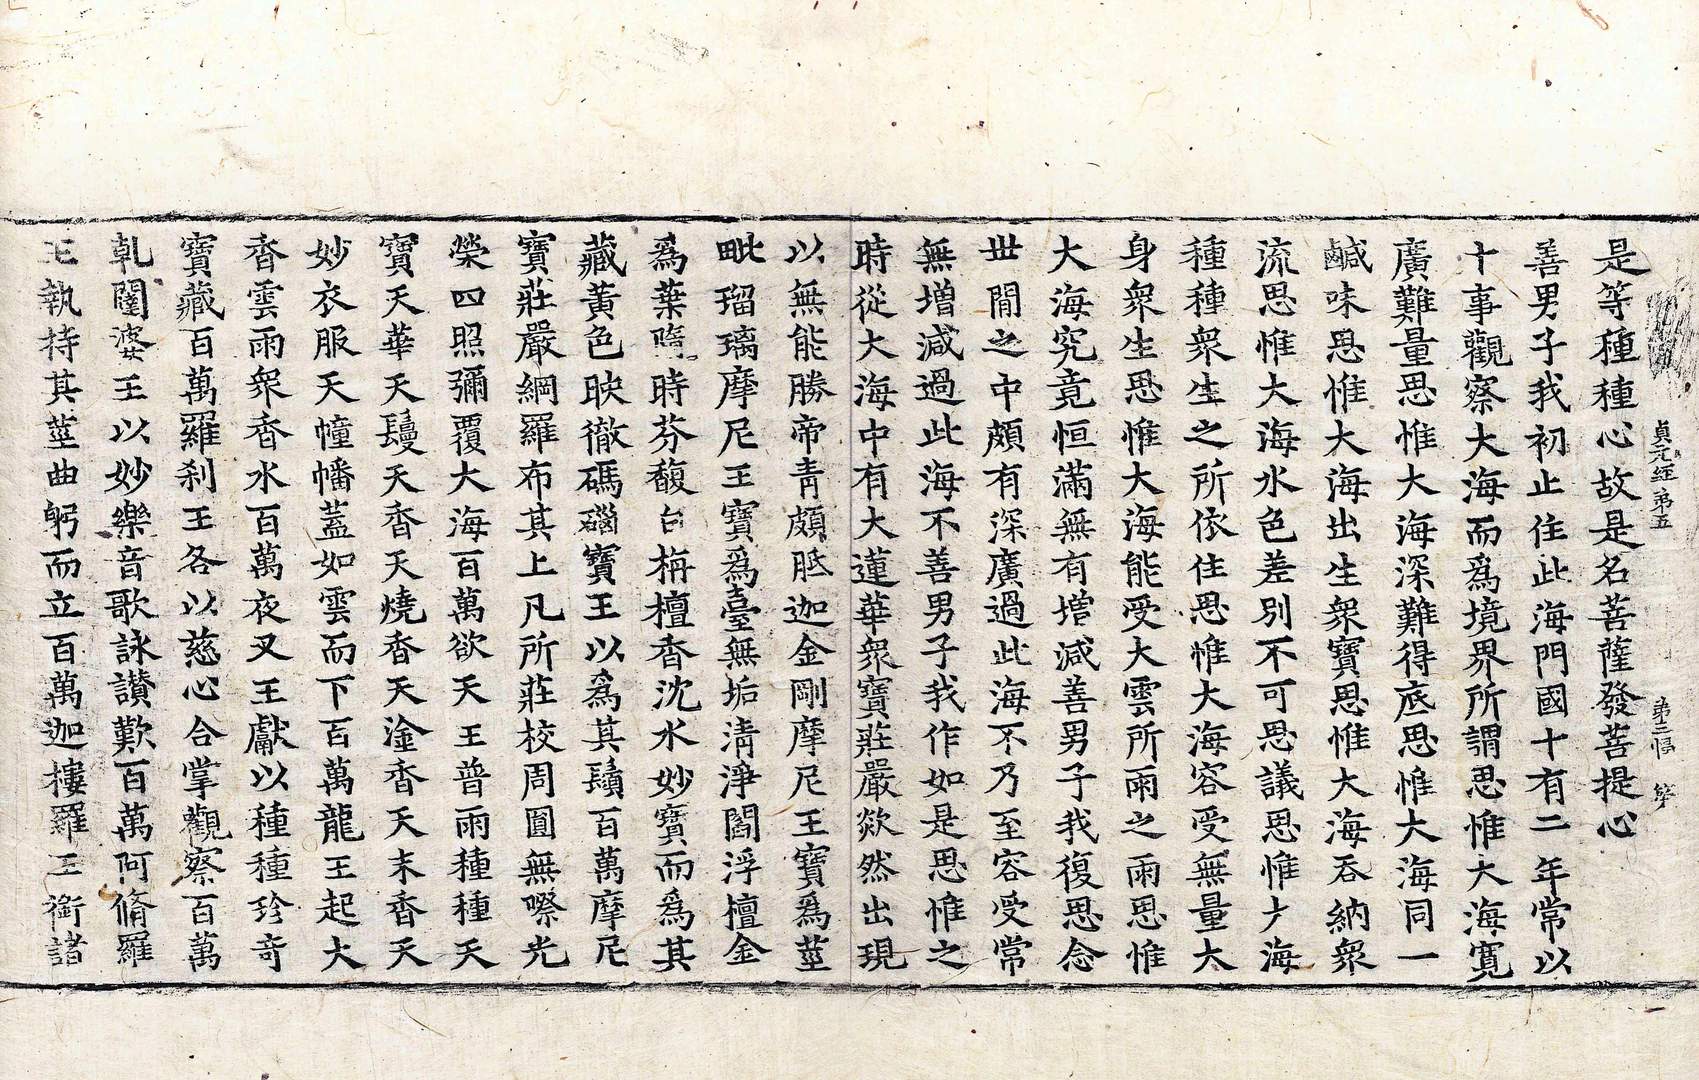 貞元經第五 第二幅 
是等種種心故是名菩薩發菩提心
善男子我初止住此海門國十有二年常以
十事觀察大海而爲境界所謂思惟大海寬
廣難量思惟大海深難得底思惟大海同一
鹹味思惟大海出生衆寶思惟大海吞納衆
流思惟大海水色差別不可思議思惟大海
種種衆生之所依住思惟大海容受無量大
身衆生思惟大海能受大雲所雨之雨思惟
大海究竟恒滿無有增減善男子我復思念
世間之中頗有深廣過此海不乃至容受常
無增減過此海不善男子我作如是思惟之
時從大海中有大蓮華衆寶莊嚴欻然出現
以無能勝帝青頗胝迦金剛摩尼王寶爲莖
毗瑠璃摩尼王寶爲臺無垢淸淨閻浮檀金
爲葉隨時芬馥白栴檀香沈水妙寶而爲其
藏黃色映徹碼碯寶王以爲其鬚百萬摩尼
寶莊嚴網羅布其上凡所莊校周圓無際光
榮四照彌覆大海百萬欲天王普雨種種天
寶天華天鬘天香天燒香天塗香天末香天
妙衣服天幢幡蓋如雲而下百萬龍王起大
香雲雨衆香水百萬夜叉王獻以種種珍奇
寶藏百萬羅刹王各以慈心合掌觀察百萬
乹闥婆王以妙樂音歌詠讃歎百萬阿脩羅
王執持其莖曲躬而立百萬迦樓羅王銜諸